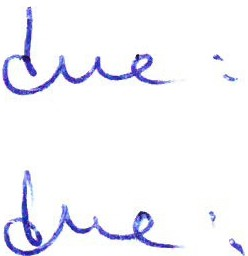 due:
due: